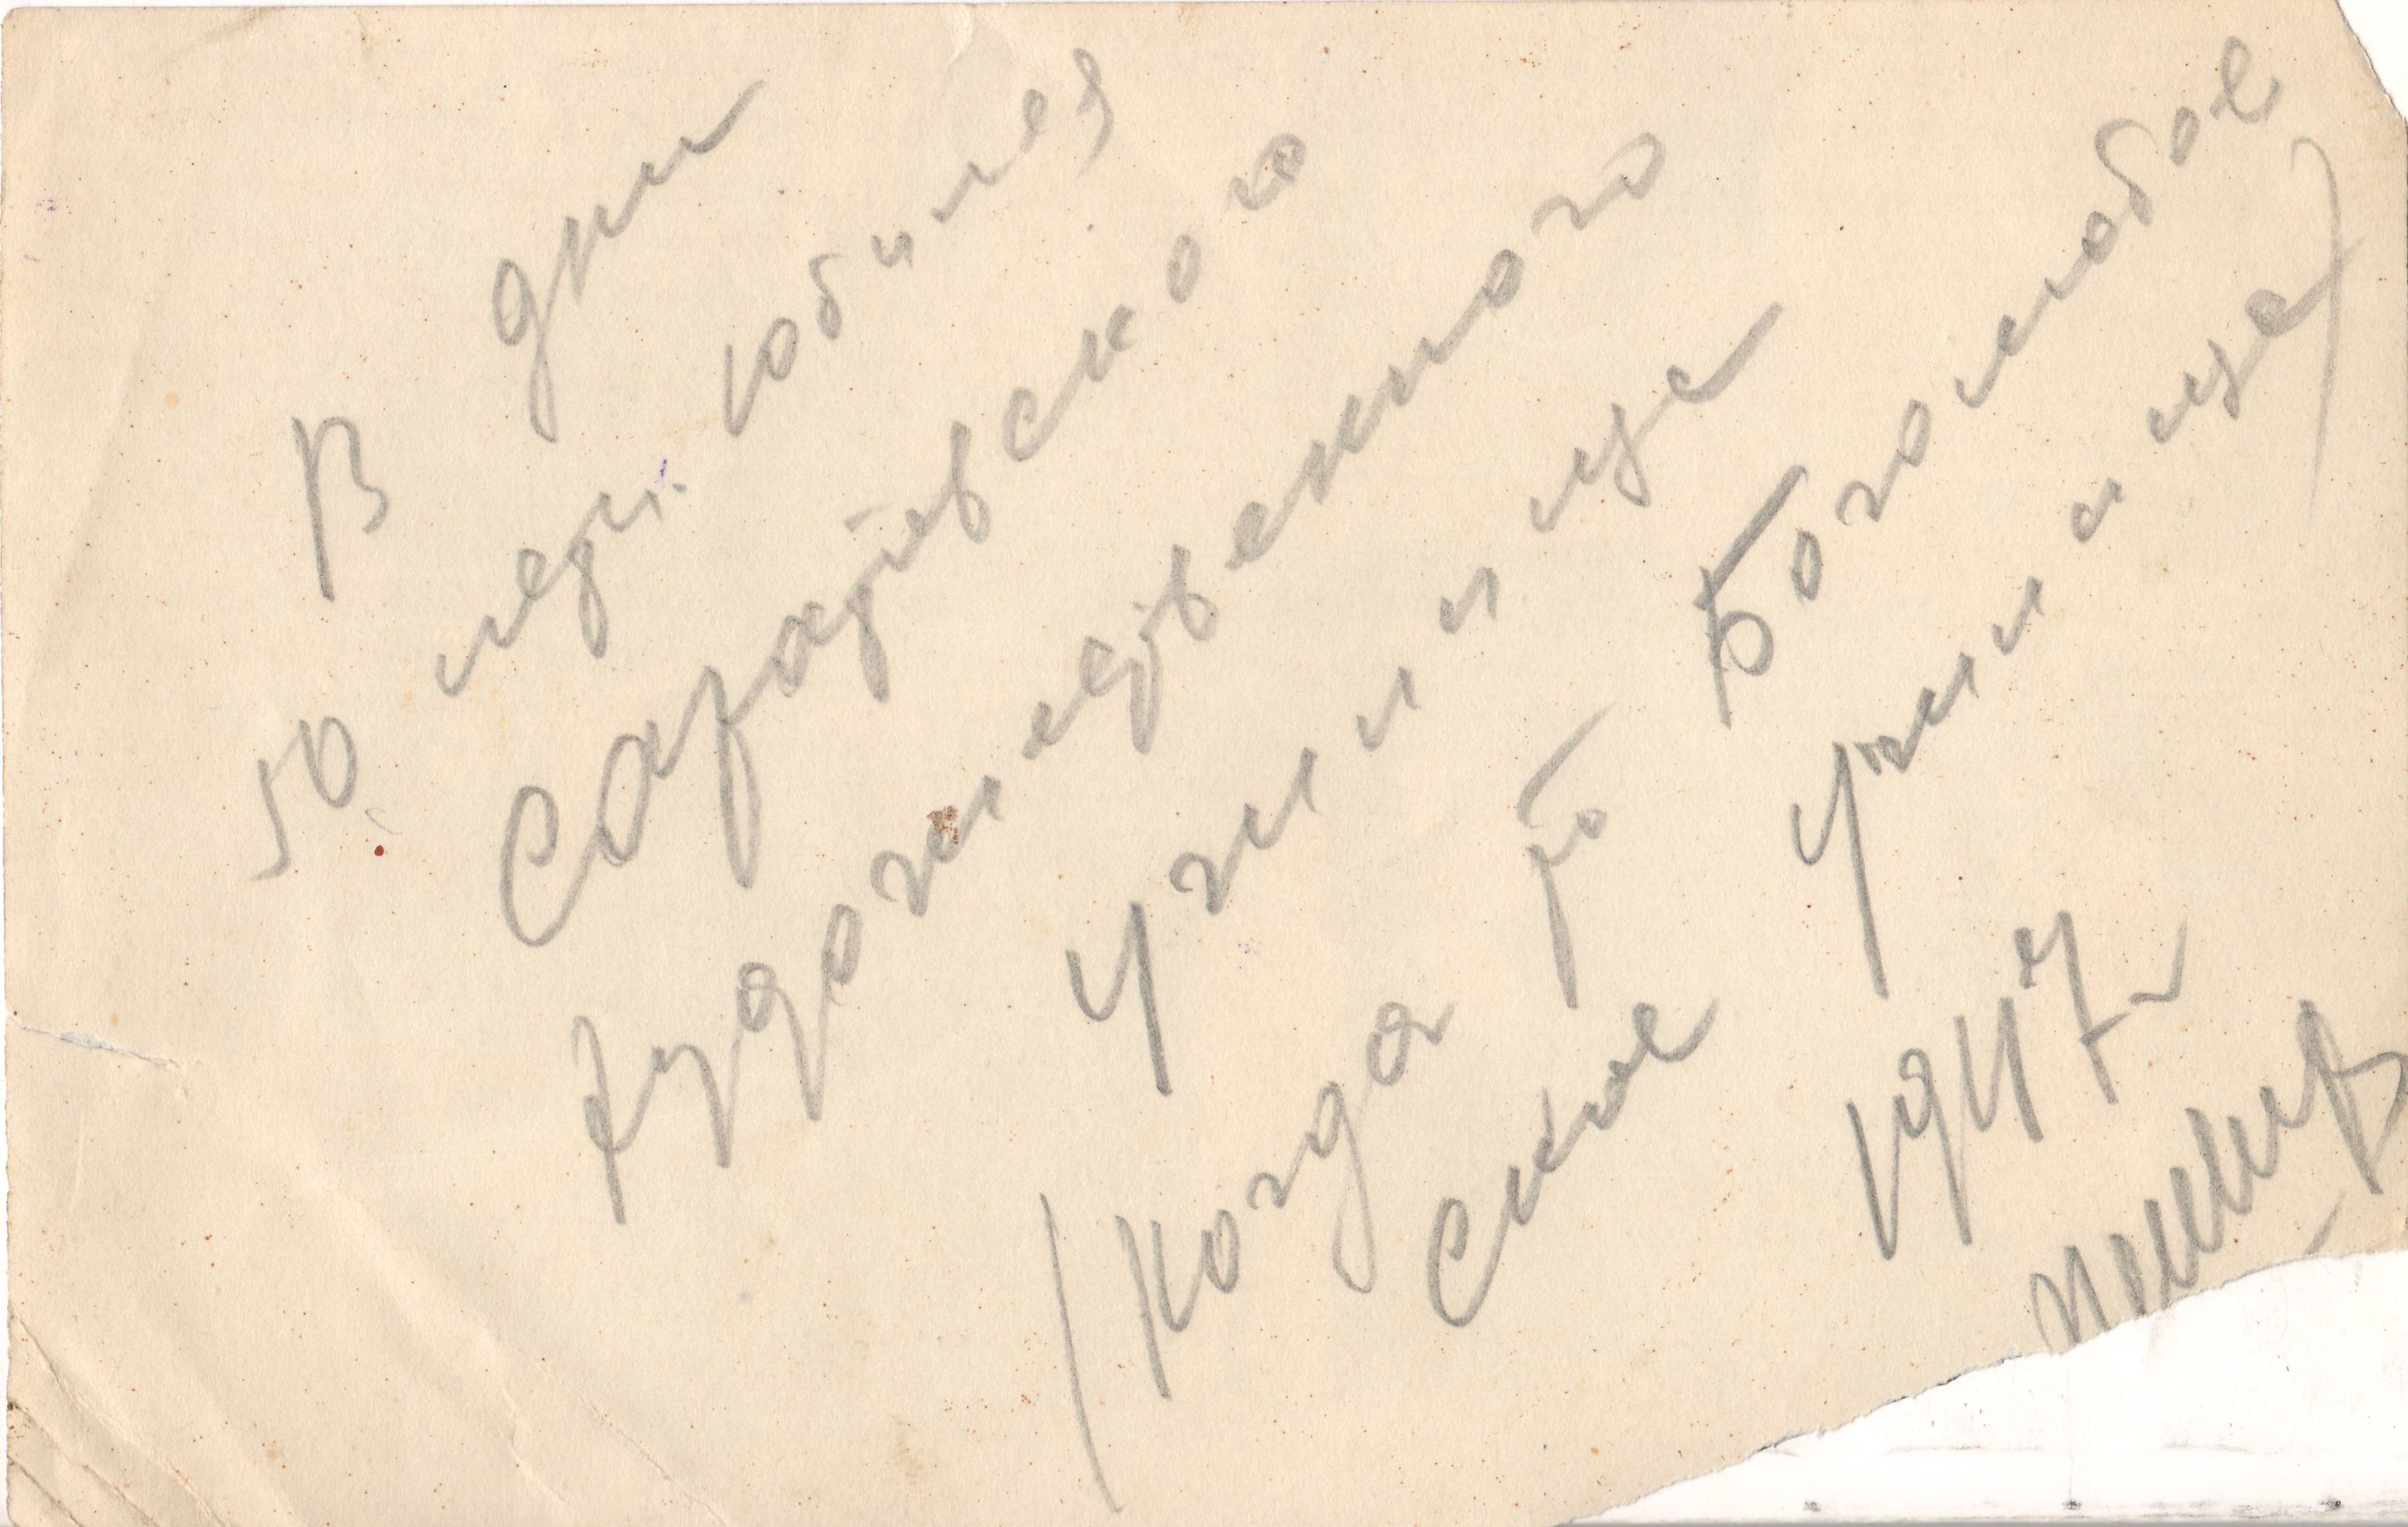 В дни
50 летн. юбилея
Саратовского
художественного
Училища
(Когда то Боголюбов
ское Училище)
1947 г